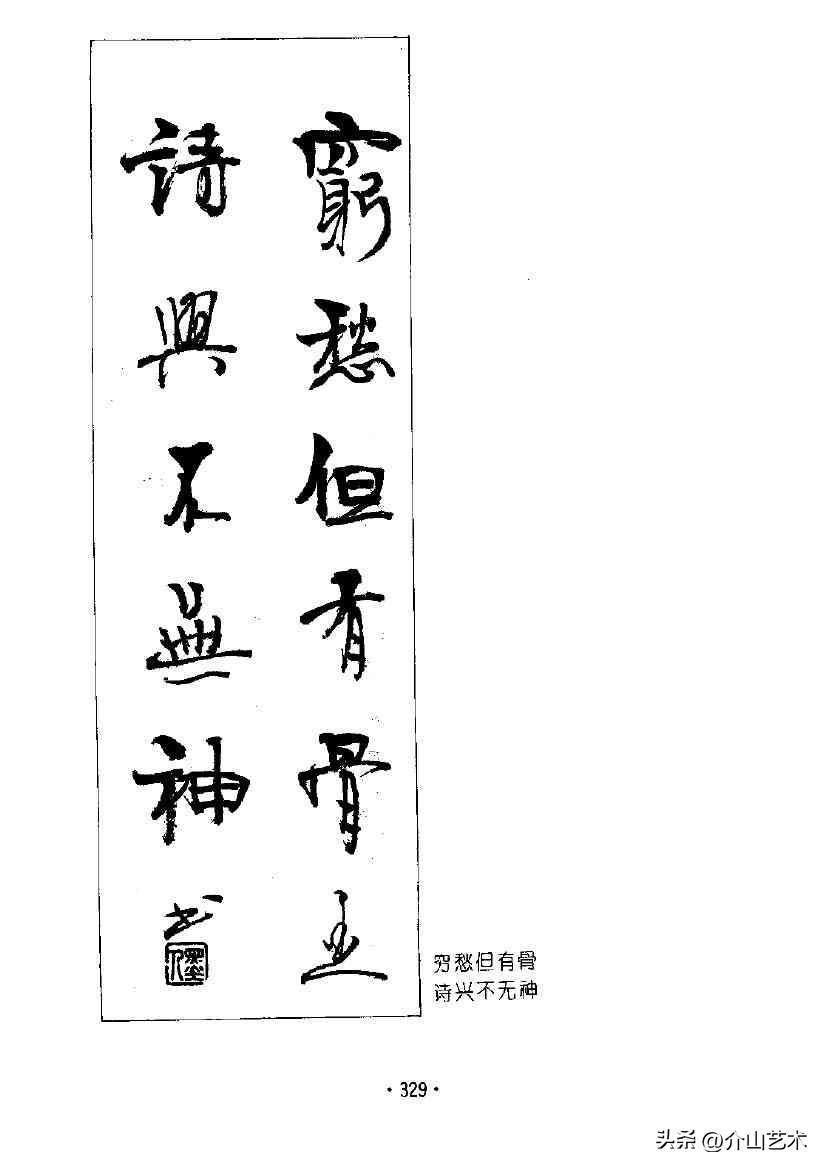 窮愁但有骨
詩興不無神 书
穷愁但有骨
诗兴不无神
·329·
头条 @介山艺术